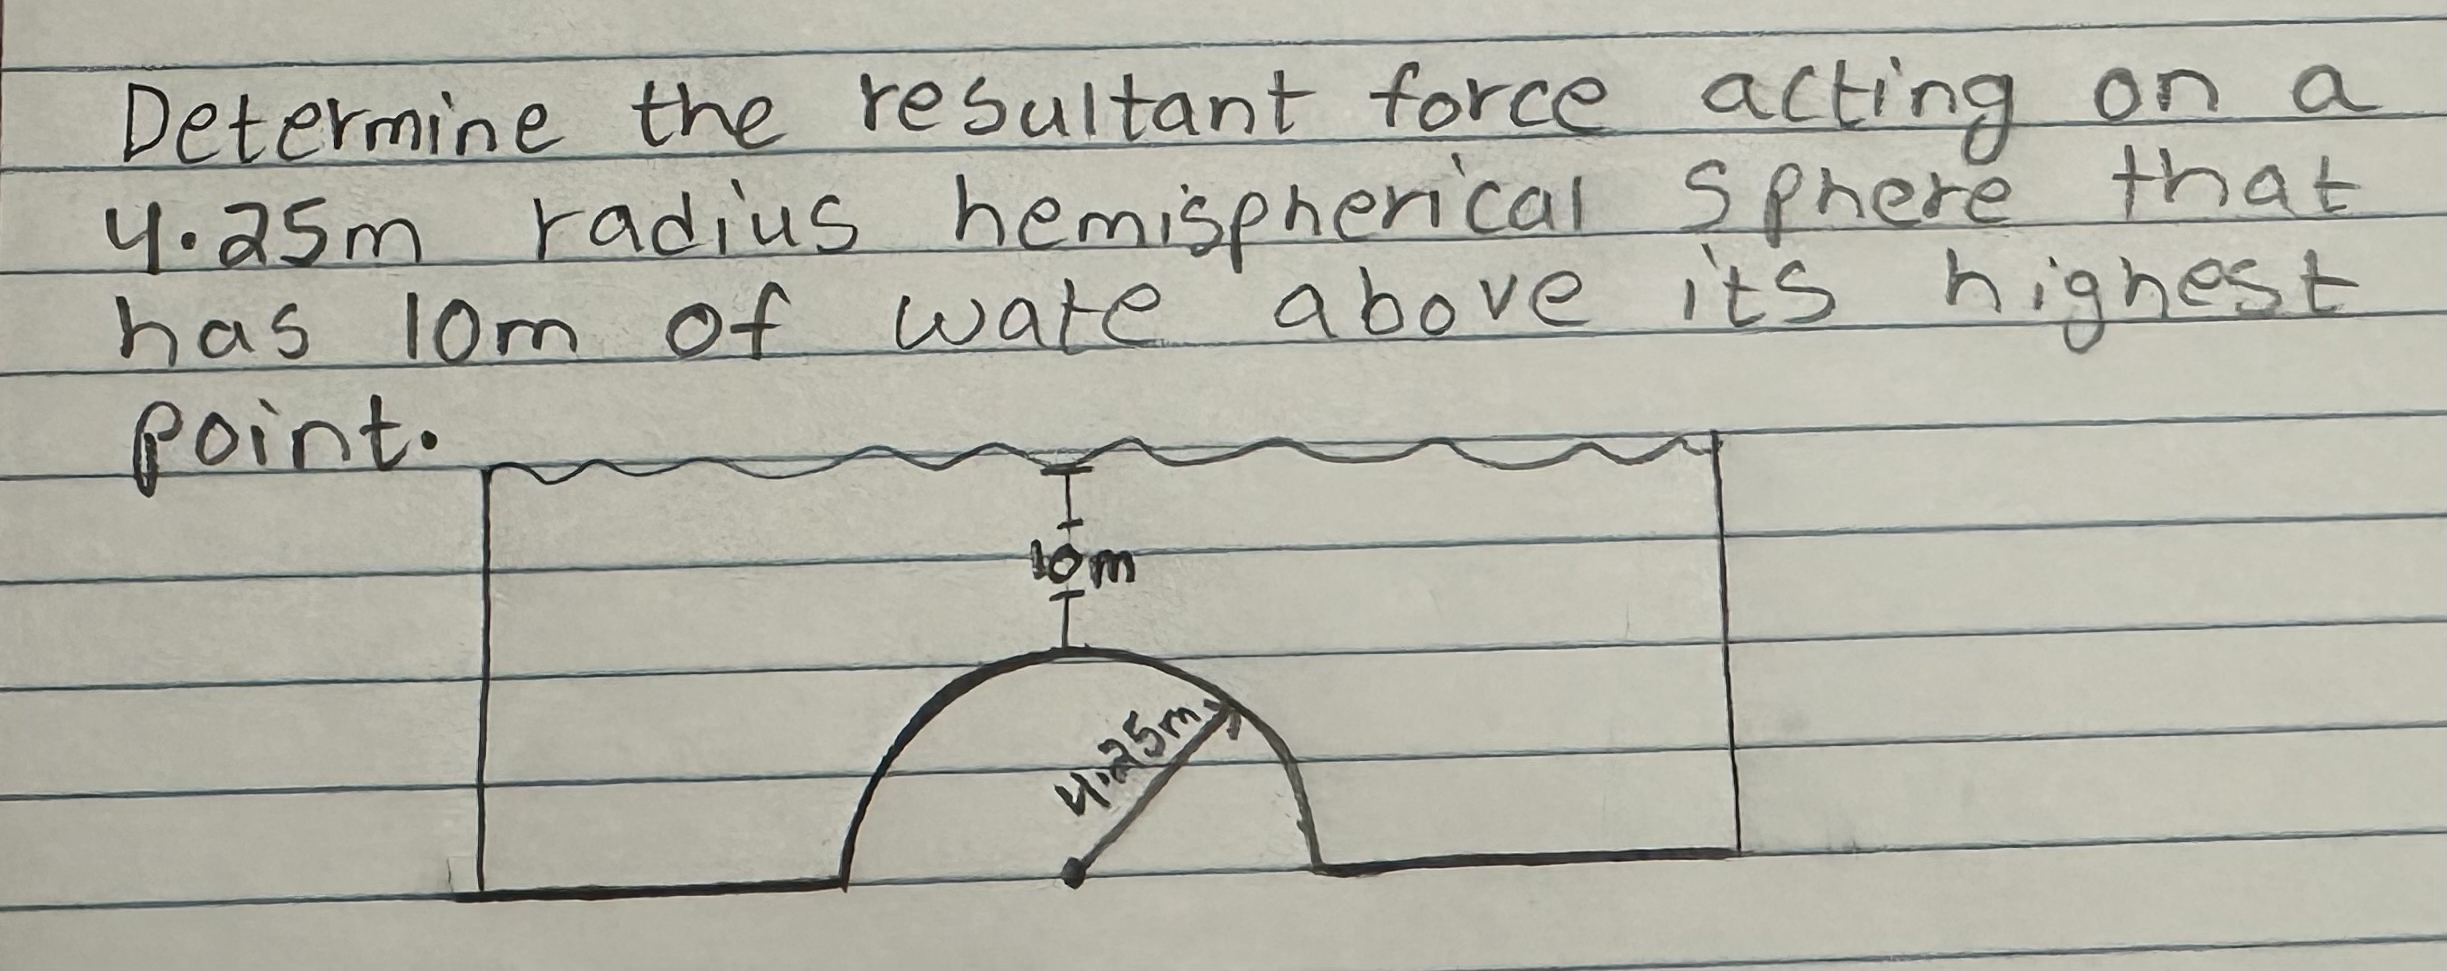 Determine the resultant force acting on a
4.25m radius hemispherical sphere that
has 10m of wate above its highest
point.
10m
4.25m